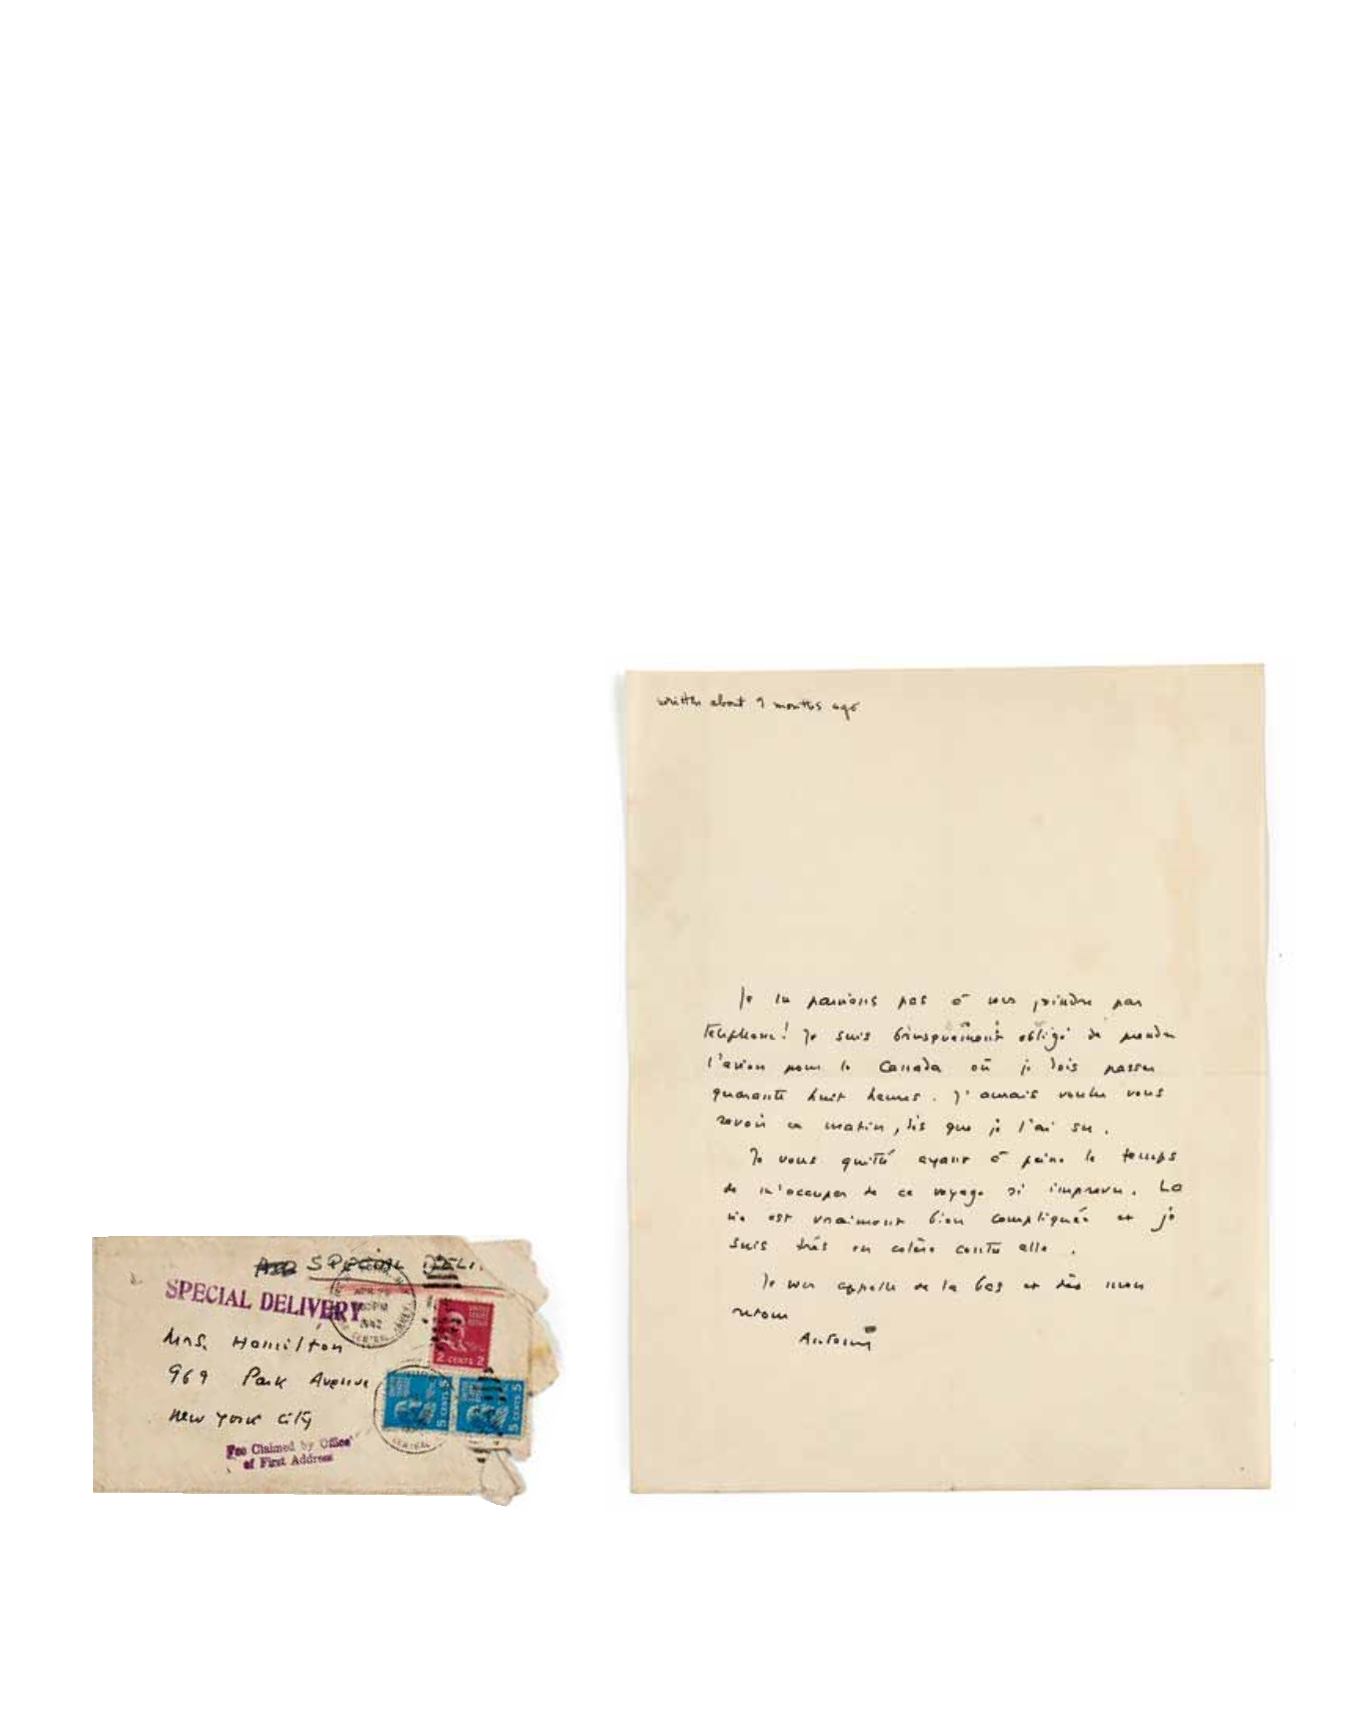 SPECIAL DELI.
SPECIAL DELIVERY
APR
PM
1942
CENTRAL
UNITED STATES POSTAGE
2 CENTS 2
5 CENTS 5
5 CENTS 5
Mrs. Hamilton
969 Park Avenue
New York City
Fee Claimed by Office
of First Address
written about 9 months ago
Je ne parviens pas à vous joindre par
téléphone! Je suis brusquement obligé de prendre
l'avion pour le Canada où je dois passer
quarante huit heures. J'aurais voulu vous
revoir ce matin, dès que je l'ai su.
Je vous quitte ayant à peine le temps
de m'occuper de ce voyage si imprévu. La
vie est vraiment bien compliquée et je
suis très en colère contre elle.
Je vous appelle de la bas et dès mon
retour
Antoine